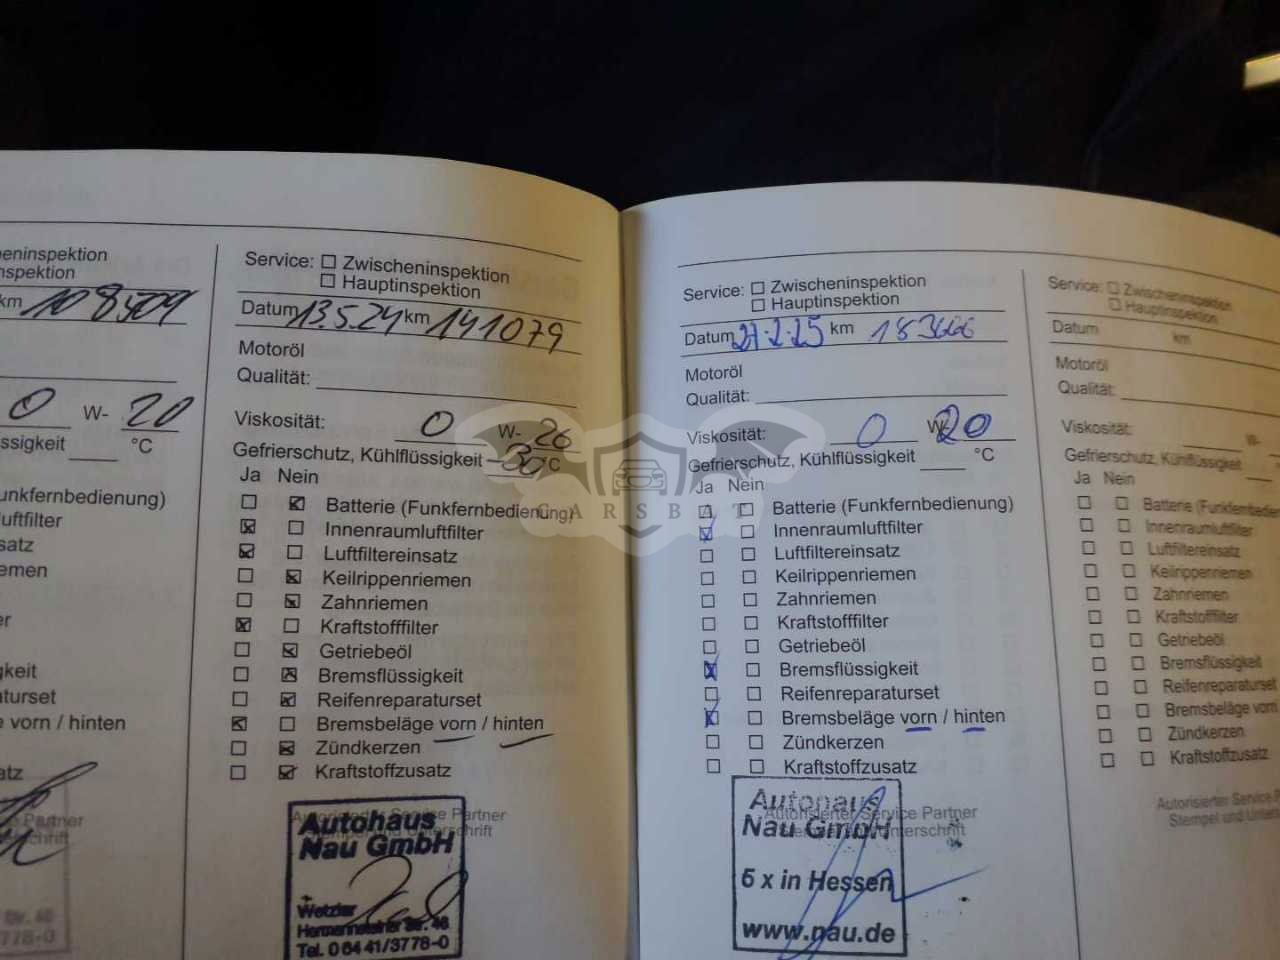 eninspektion
nspektion
km 108509
0 W- 20
üssigkeit °C
unkfernbedienung)
uftfilter
satz
emen
er
gkeit
aturset
e vorn / hinten
atz
Partner
rift
Str. 46
778-0
Service: Zwischeninspektion
Hauptinspektion
Datum 13.5.24 km 141079
Motoröl
Qualität:
Viskosität: 0 W- 20
Gefrierschutz, Kühlflüssigkeit -30°C
Ja Nein
Batterie (Funkfernbedienung)
Innenraumluftfilter
Luftfiltereinsatz
Keilrippenriemen
Zahnriemen
Kraftstofffilter
Getriebeöl
Bremsflüssigkeit
Reifenreparaturset
Bremsbeläge vorn / hinten
Zündkerzen
Kraftstoffzusatz
Autorisierter Service Partner
Stempel und Unterschrift
Autohaus
Nau GmbH
Wetzlar
Hermannsteiner Str. 46
Tel. 0 64 41/3778-0
Service: Zwischeninspektion
Hauptinspektion
Datum 27.2.25 km 183666
Motoröl
Qualität:
Viskosität: 0 W- 20
Gefrierschutz, Kühlflüssigkeit °C
Ja Nein
Batterie (Funkfernbedienung)
Innenraumluftfilter
Luftfiltereinsatz
Keilrippenriemen
Zahnriemen
Kraftstofffilter
Getriebeöl
Bremsflüssigkeit
Reifenreparaturset
Bremsbeläge vorn / hinten
Zündkerzen
Kraftstoffzusatz
Autorisierter Service Partner
Stempel und Unterschrift
Autohaus
Nau GmbH
6 x in Hessen
www.nau.de
Service: Zwischeninspektion
Hauptinspektion
Datum km
Motoröl
Qualität:
Viskosität: W-
Gefrierschutz, Kühlflüssigkeit
Ja Nein
Batterie (Funkfernbedie
Innenraumluftfilter
Luftfiltereinsatz
Keilrippenriemen
Zahnriemen
Kraftstofffilter
Getriebeöl
Bremsflüssigkeit
Reifenreparaturset
Bremsbeläge vorn
Zündkerzen
Kraftstoffzusatz
Autorisierter Service
Stempel und Unters
CARSBAT